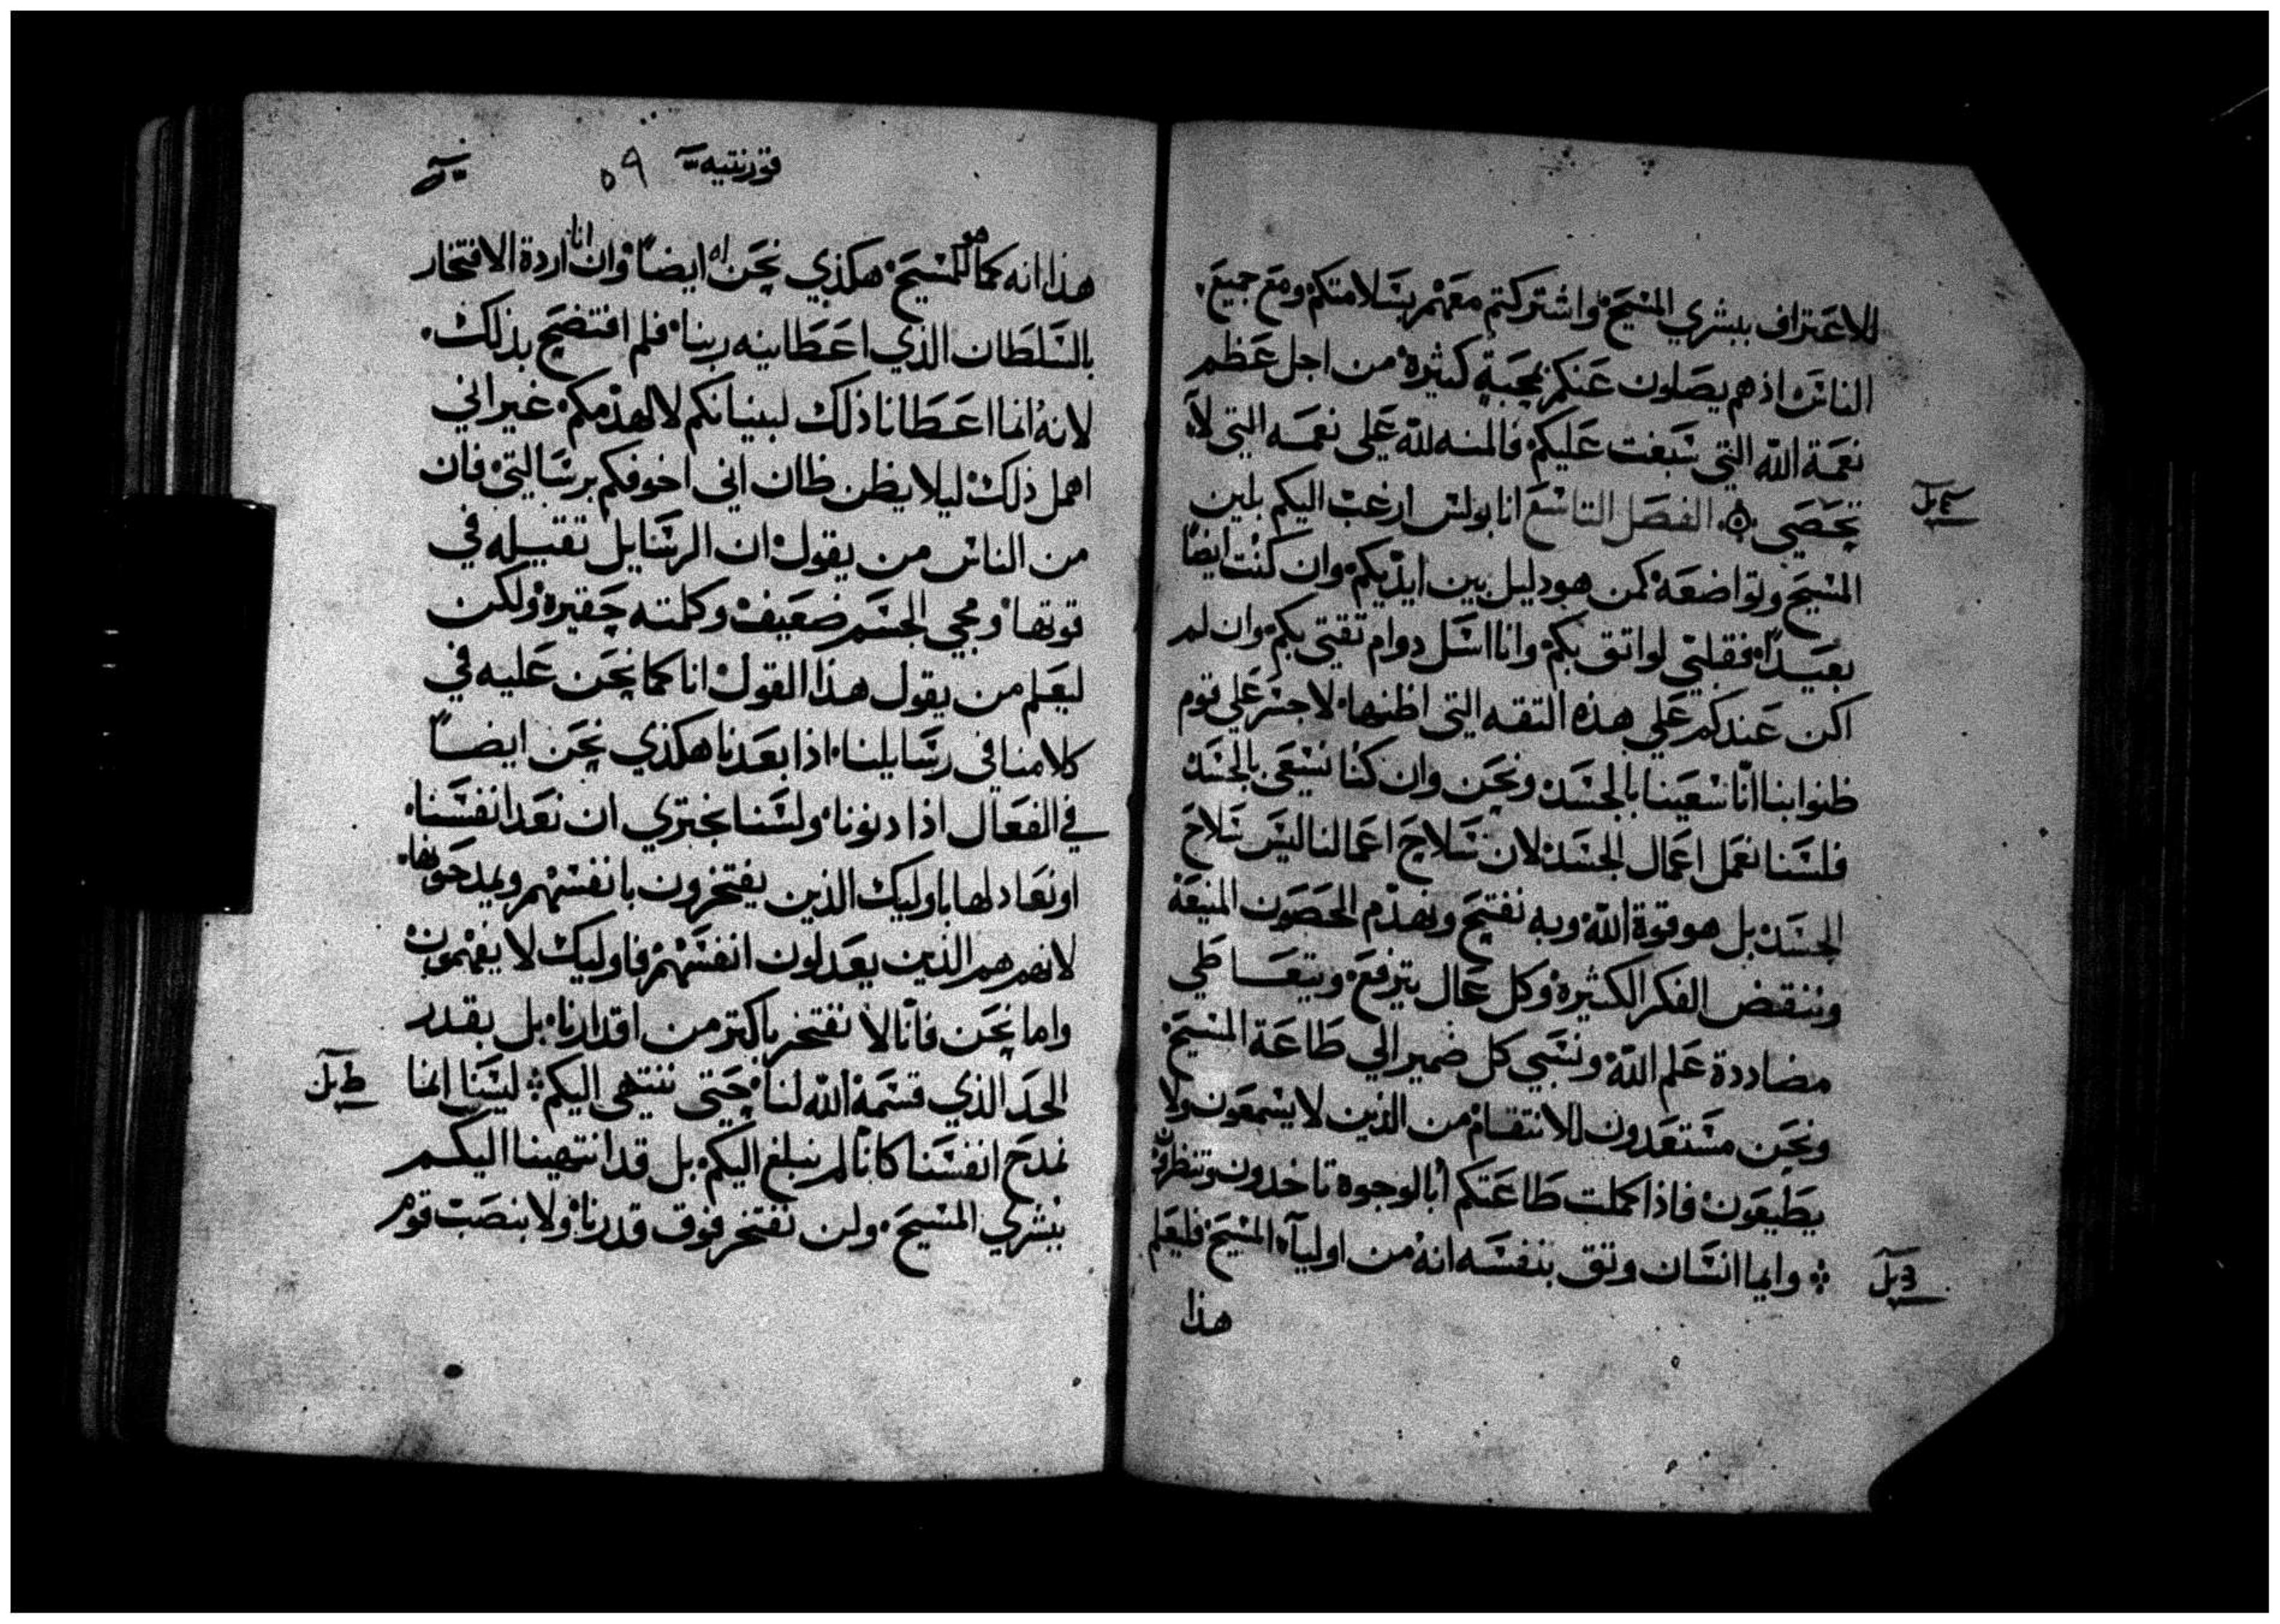 للاعتراف ببشري المسيح واشتركتم معهم بسلامتكم ومع جميع
الناس اذ هم يصلون عنكم بمحبة كثيرة من اجل عظم
نعمة الله التي سبغت عليكم فالمنه لله علي نعمه التي لا
تحصي الفصل التاسع انا بولس ارغب اليكم بلين
المسيح وتواضعه كمن هو دليل بين ايديكم وان كنت ايضاً
بعيداً فقلبي لواتق بكم وانا اسل دوام تقتي بكم وان لم
اكن عندكم علي هذه التقه التي اظنها لاجسر علي قوم
ظنوا بنا انّا سعينا بالجسد ونحن وان كنا نسعي بالجسد
فلسنا نعمل اعمال الجسد لان سلاح اعمالنا ليس سلاح
الجسد بل هو قوة الله وبه نفتتح ونهدم الحصون المنيعة
وننقض الفكر الكثيرة وكل عال يترفع ويتعاطي
مضاددة علم الله ونسبي كل ضمير الي طاعة المسيح
ونحن مستعدون للانتقام من الذين لا يسمعون ولا
يطيعون فاذا كملت طاعتكم أبالوجوه تاخدون وتنظرون
وايما انسان وتق بنفسه انه من اوليآء المسيح فليعلم
هذا
قورنتيه ٥٩
هذا انه كما هو للمسيح هكذي نحن له ايضاً وان انا اردة الافتخار
بالسلطان الذي اعطانيه ربنا فلم افتضح بذلك
لانه انما اعطانا ذلك لبنيانكم لا لهدمكم غير اني
اهمل ذلك ليلا يظن ظان اني اخوفكم برسالتي فان
من الناس من يقول ان الرسايل تقيله في
قوتها ومجي الجسم ضعيف وكلمته حقيرة ولكن
ليعلم من يقول هذا القول انا كما نحن عليه في
كلامنا في رسايلنا اذا بعدنا هكذي نحن ايضاً
في الفعال اذا دنونا ولسنا نجتري ان نعد انفسنا
او نعادلها باوليك الذين يفتخرون بانفسهم ويمدحونها
لانهم هم الذين يعدلون انفسهم فاوليك لا يفهمون
واما نحن فانّا لا نفتخر باكتر من اقدارنا بل بقدر
الحد الذي قسمه الله لنا حتي ننتهي اليكم ليسنا انما
نمدح انفسنا كانّا لم نبلغ اليكم بل قد انتهينا اليكم
ببشري المسيح ولن نفتخر فوق قدرنا ولا بنصب قوم